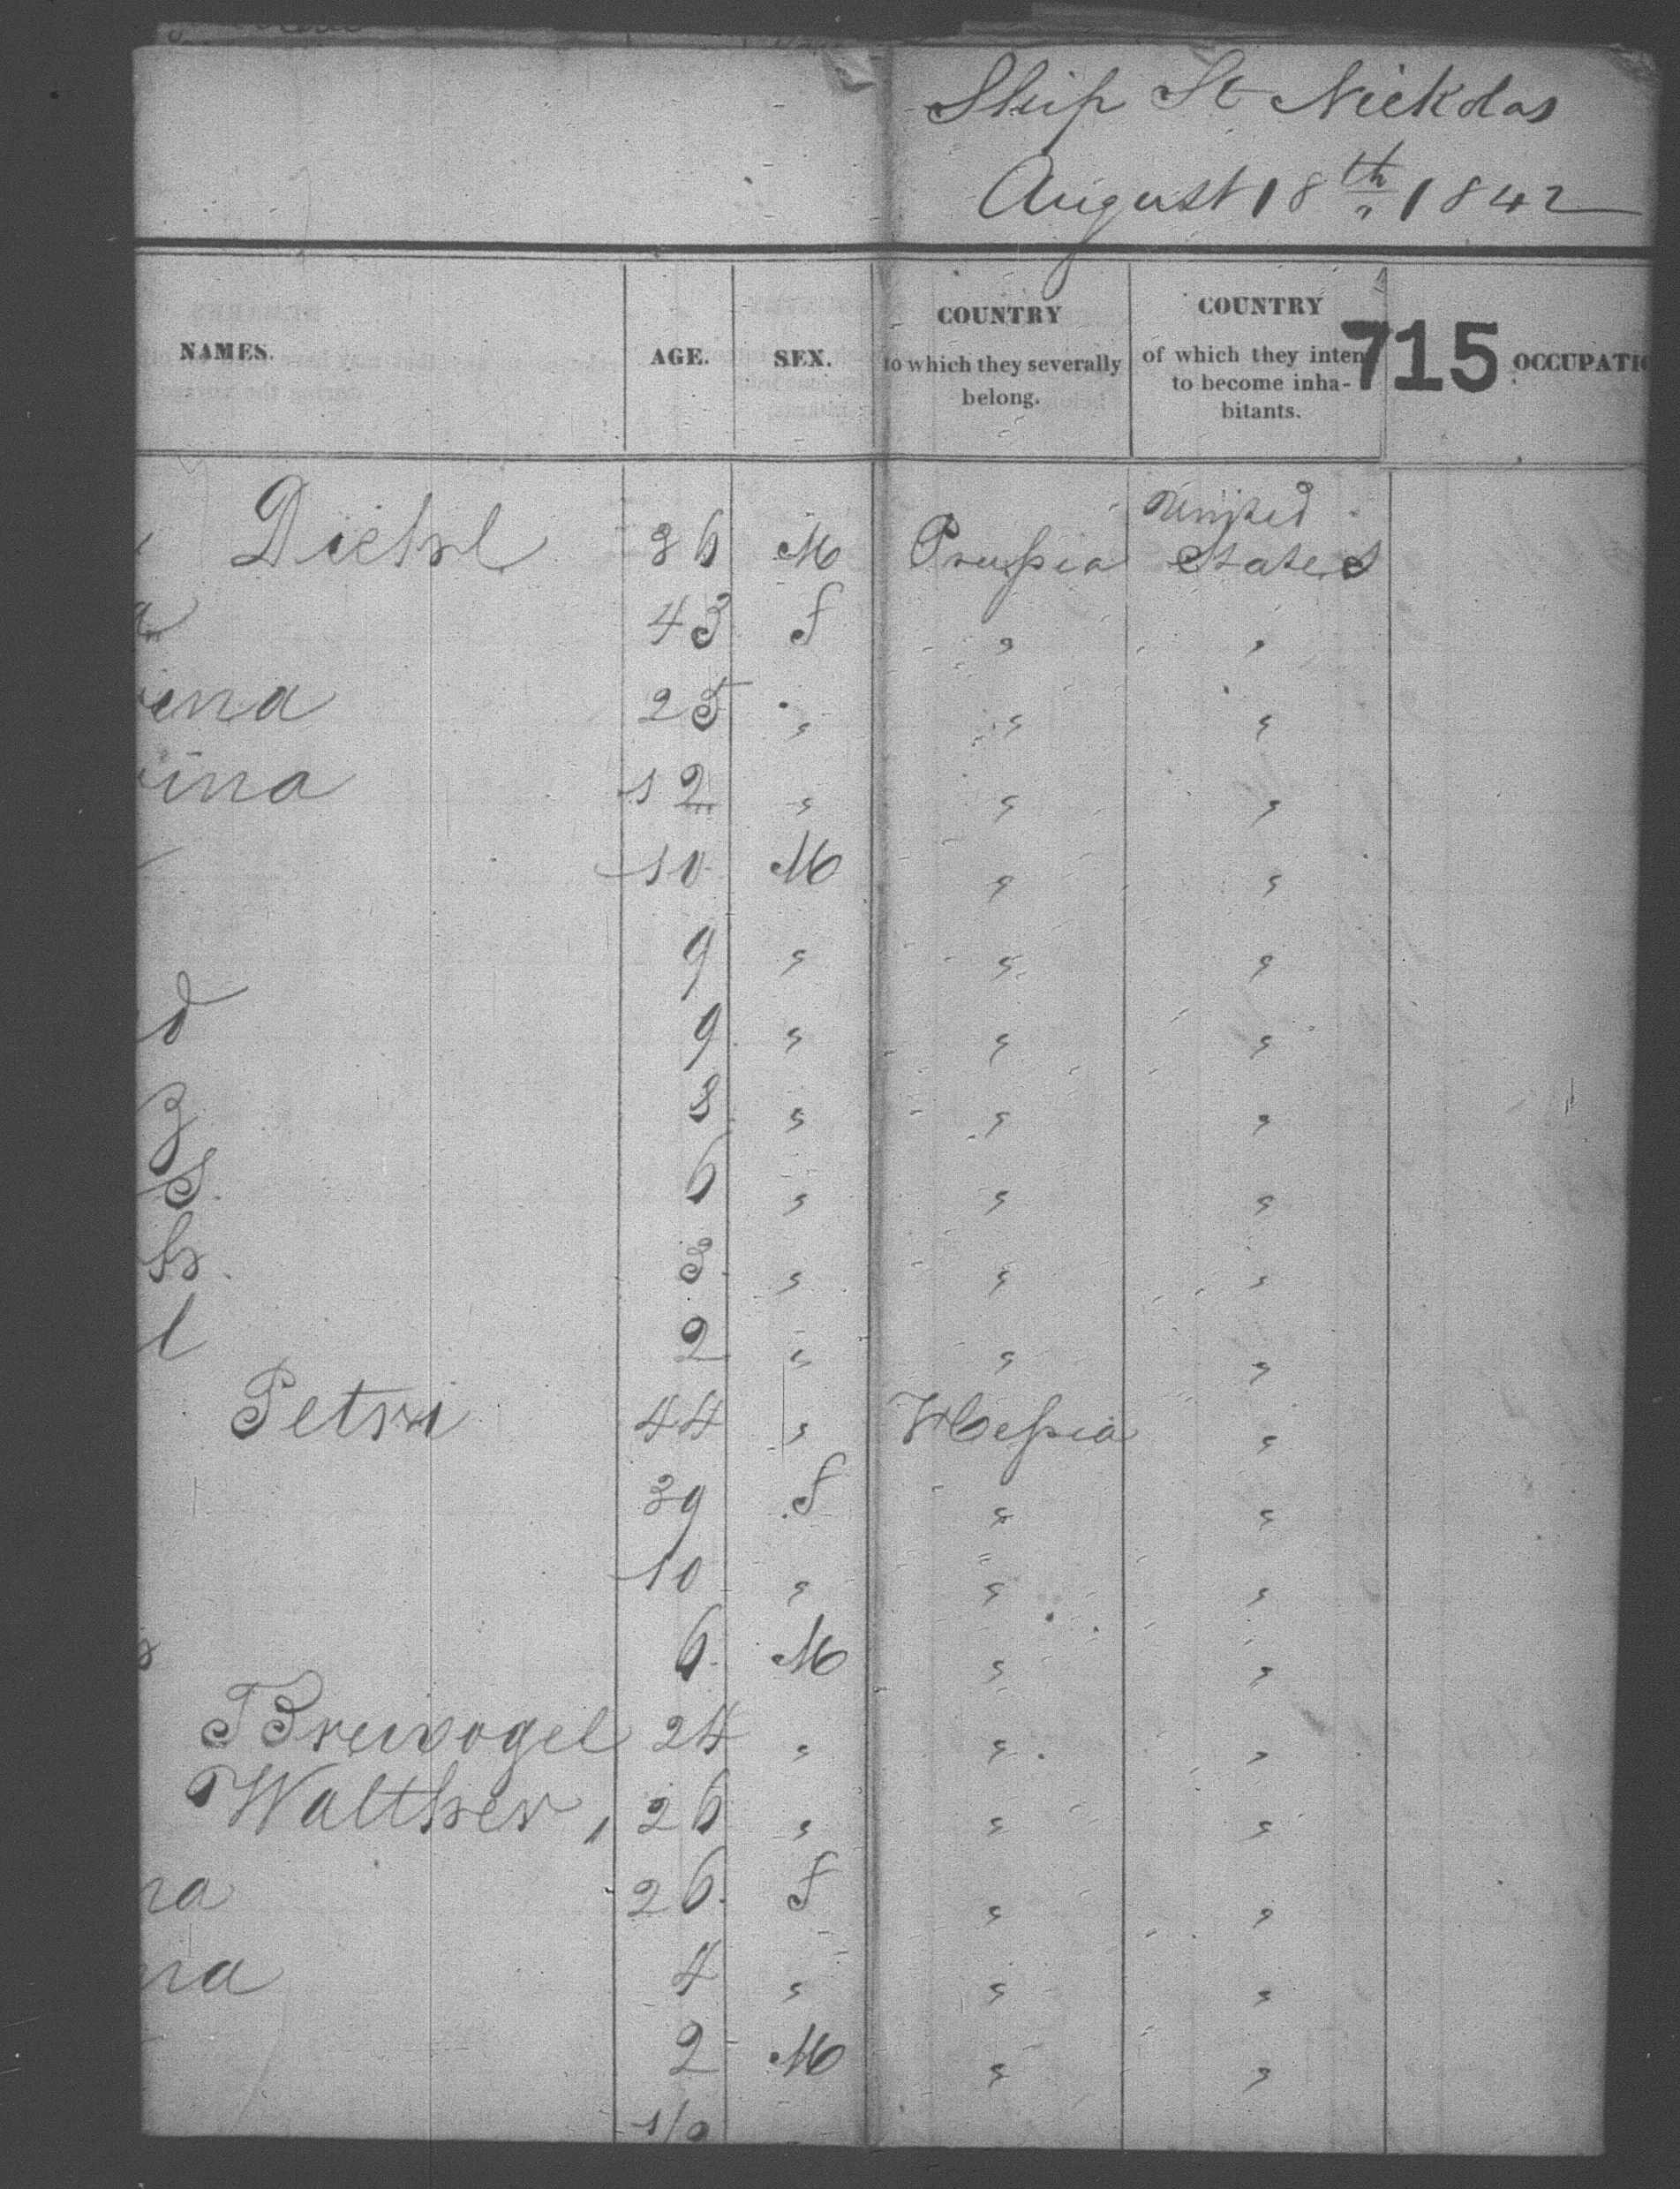 Ship St Nickolas
August 18th 1842
NAMES. AGE. SEX. COUNTRY to which they severally belong. COUNTRY of which they inten to become inha- bitants. 715 OCCUPATIO
Diehl 36 M Prussia United States
a 43 f " "
ena 25 " " "
ina 12 " " "
10 M " "
9 " " "
d 9 " " "
z 8 " " "
s. 6 " " "
h. 3 " " "
l 2 " " "
Petri 44 " Hessia "
39 f " "
10 " " "
s 6 M " "
Breivogel 24 " " "
Walther, 26 " " "
na 26 f " "
na 4 " " "
2 M " "
1/2